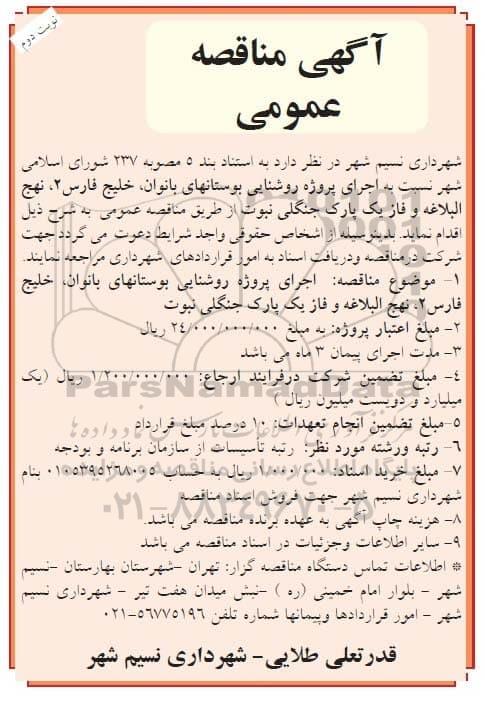 نوبت دوم
آگهی مناقصه
عمومی
شهرداری نسیم شهر در نظر دارد به استناد بند ۵ مصوبه ۲۳۷ شورای اسلامی
شهر نسبت به اجرای پروژه روشنایی بوستانهای بانوان، خلیج فارس۲، نهج
البلاغه و فاز یک پارک جنگلی نبوت از طریق مناقصه عمومی به شرح ذیل
اقدام نماید. بدینوسیله از اشخاص حقوقی واجد شرایط دعوت می گردد جهت
شرکت در مناقصه ودریافت اسناد به امور قراردادهای شهرداری مراجعه نمایند.
۱- موضوع مناقصه: اجرای پروژه روشنایی بوستانهای بانوان، خلیج
فارس۲، نهج البلاغه و فاز یک پارک جنگلی نبوت
۲- مبلغ اعتبار پروژه: به مبلغ ۲۴/۰۰۰/۰۰۰/۰۰۰ ریال
۳- مدت اجرای پیمان ۳ ماه می باشد
۴- مبلغ تضمین شرکت درفرایند ارجاع: ۱/۲۰۰/۰۰۰/۰۰۰ ریال (یک
میلیارد و دویست میلیون ریال )
۵-مبلغ تضمین انجام تعهدات: ۱۰ درصد مبلغ قرارداد
۶- رتبه ورشته مورد نظر: رتبه تأسیسات از سازمان برنامه و بودجه
۷- مبلغ خرید اسناد: ۱/۰۰۰/۰۰۰ ریال به حساب ۰۱۰۵۳۹۵۲۶۸۰۰۵ بنام
شهرداری نسیم شهر جهت فروش اسناد مناقصه
۸- هزینه چاپ آگهی به عهده برنده مناقصه می باشد.
۹- سایر اطلاعات وجزئیات در اسناد مناقصه می باشد
* اطلاعات تماس دستگاه مناقصه گزار: تهران -شهرستان بهارستان -نسیم
شهر - بلوار امام خمینی (ره ) -نبش میدان هفت تیر - شهرداری نسیم
شهر - امور قراردادها وپیمانها شماره تلفن ۵۶۷۷۵۱۹۶-۰۲۱
قدرتعلی طلایی- شهرداری نسیم شهر
ParsNamadData
پایگاه اطلاع رسانی مناقصه و مزایده
۰۲۱-۸۸۳۴۹۶۷۰-۵